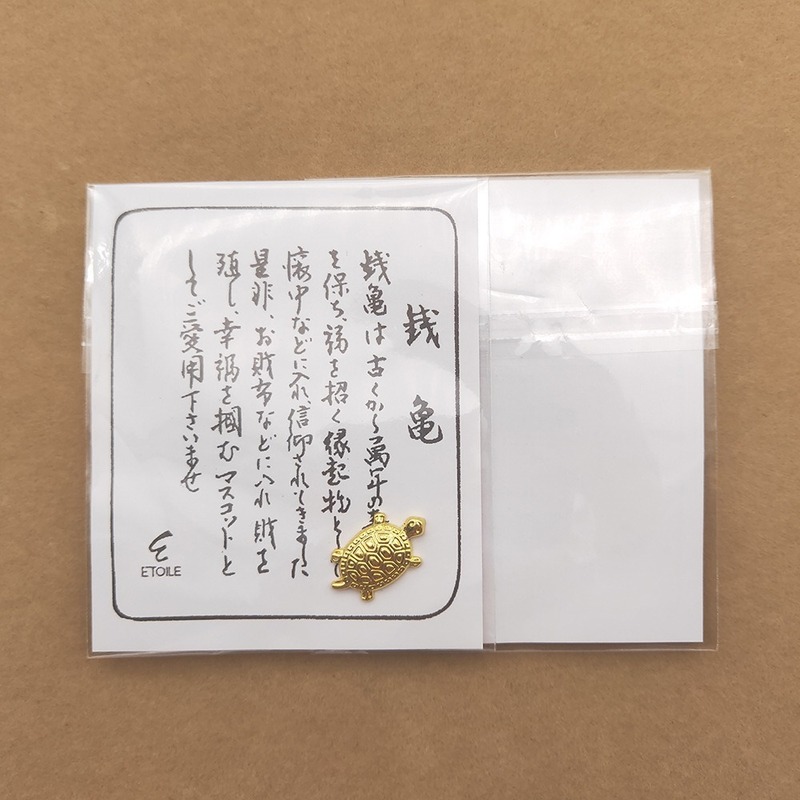 銭亀
銭亀は古くから萬年の
を保ち、福を招く縁起物とし
懐中などに入れ、信仰されてきました
是非、お財布などに入れ財を
殖し、幸福を掴むマスコットと
してご愛用下さいませ
ETOILE